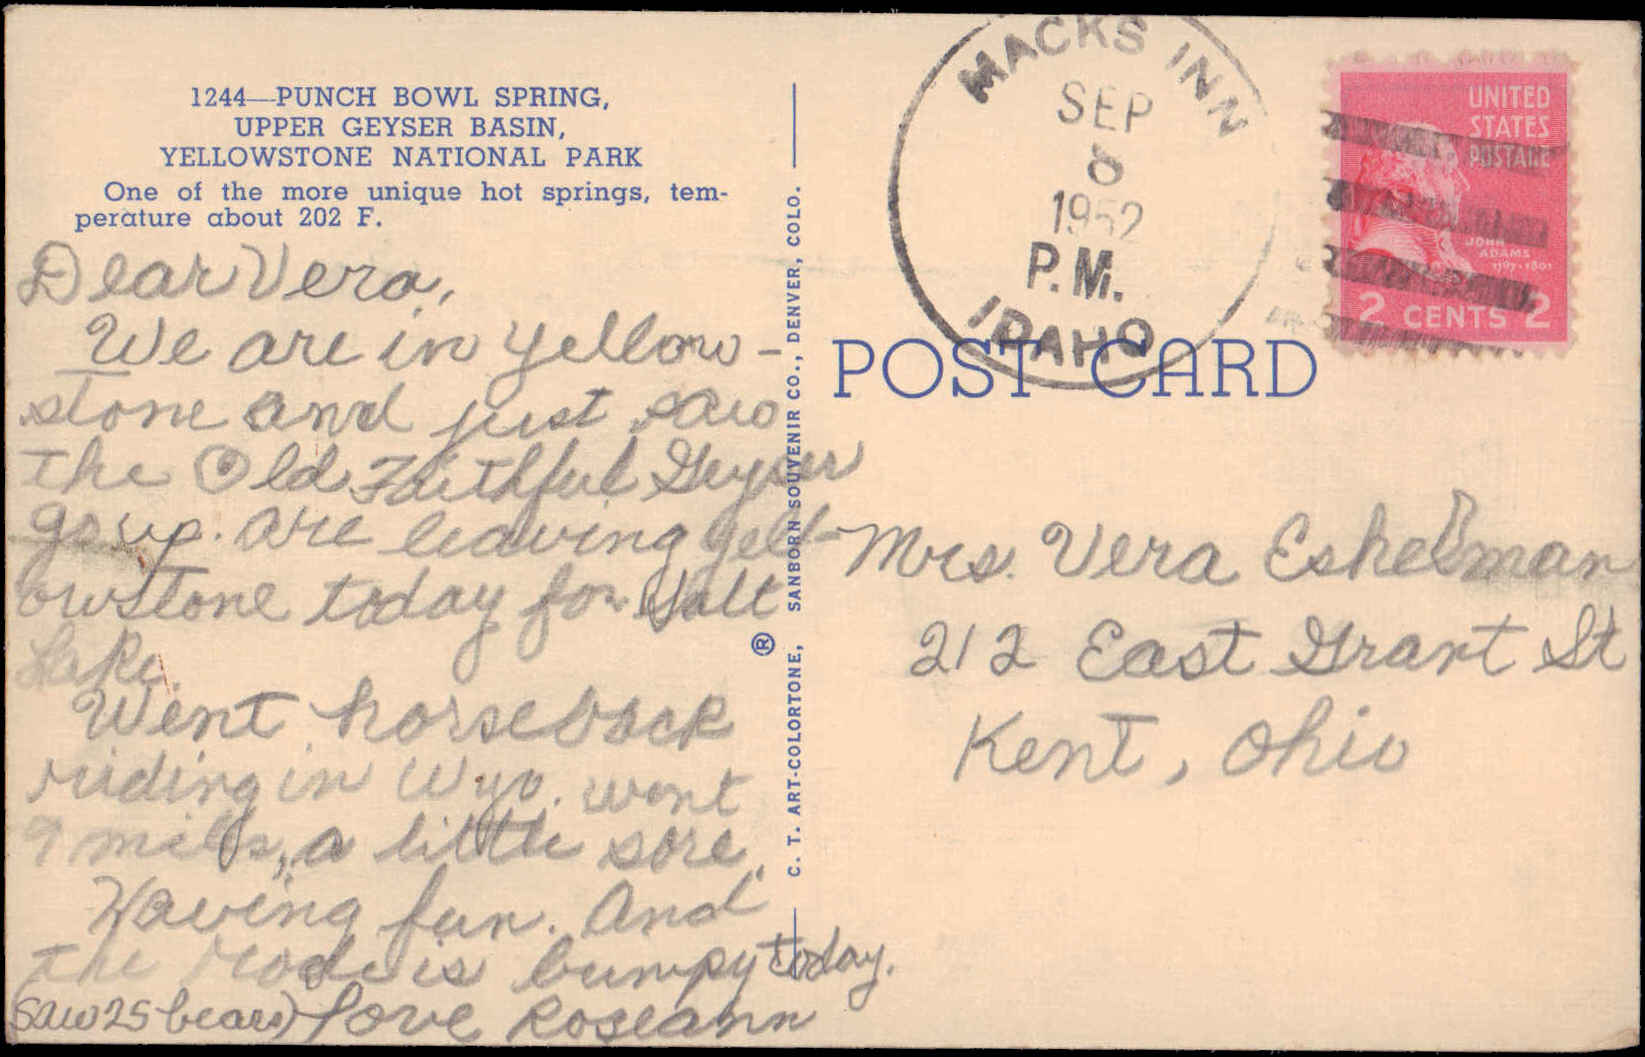 1244—PUNCH BOWL SPRING,
UPPER GEYSER BASIN,
YELLOWSTONE NATIONAL PARK
One of the more unique hot springs, tem-
perature about 202 F.
Dear Vera,
We are in yellow-
stone and just saw
the Old Faithful Geyser
go up. are leaving yell-
owstone today for Salt
Lake.
Went horseback
riding in Wyo. went
9 miles, a little sore.
Having fun. And
the road is bumpy today.
(Saw 25 bears) Love Roseann
C. T. ART-COLORTONE, ® SANBORN SOUVENIR CO., DENVER, COLO.
MACKS INN
SEP
8
1952
P.M.
IDAHO
UNITED
STATES
POSTAGE
JOHN
ADAMS
1797·1801
2 CENTS 2
POST CARD
Mrs. Vera Eshelman
212 East Grant St
Kent, Ohio